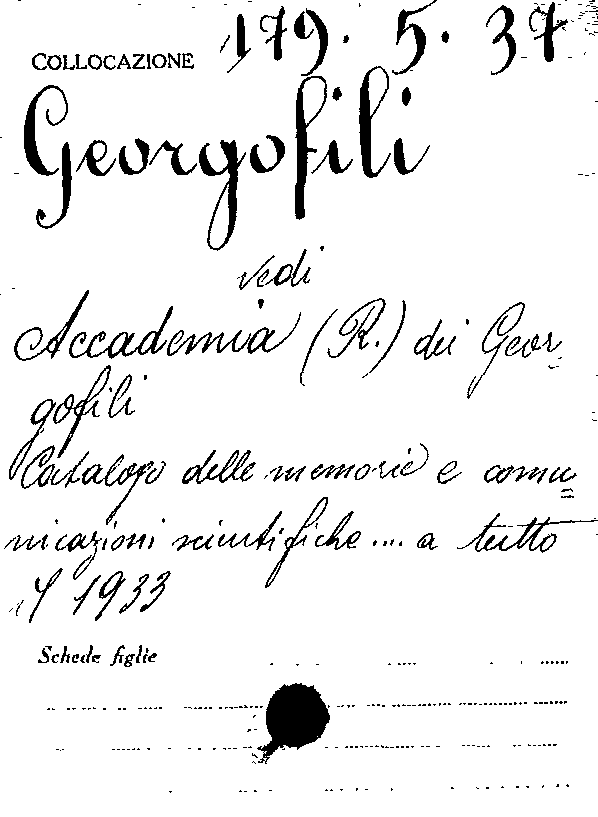 COLLOCAZIONE 179. 5. 37
Georgofili
vedi
Accademia (R.) dei Geor-
gofili
Catalogo delle memorie e comu=
nicazioni scientifiche.... a tutto
il 1933
Schede figlie